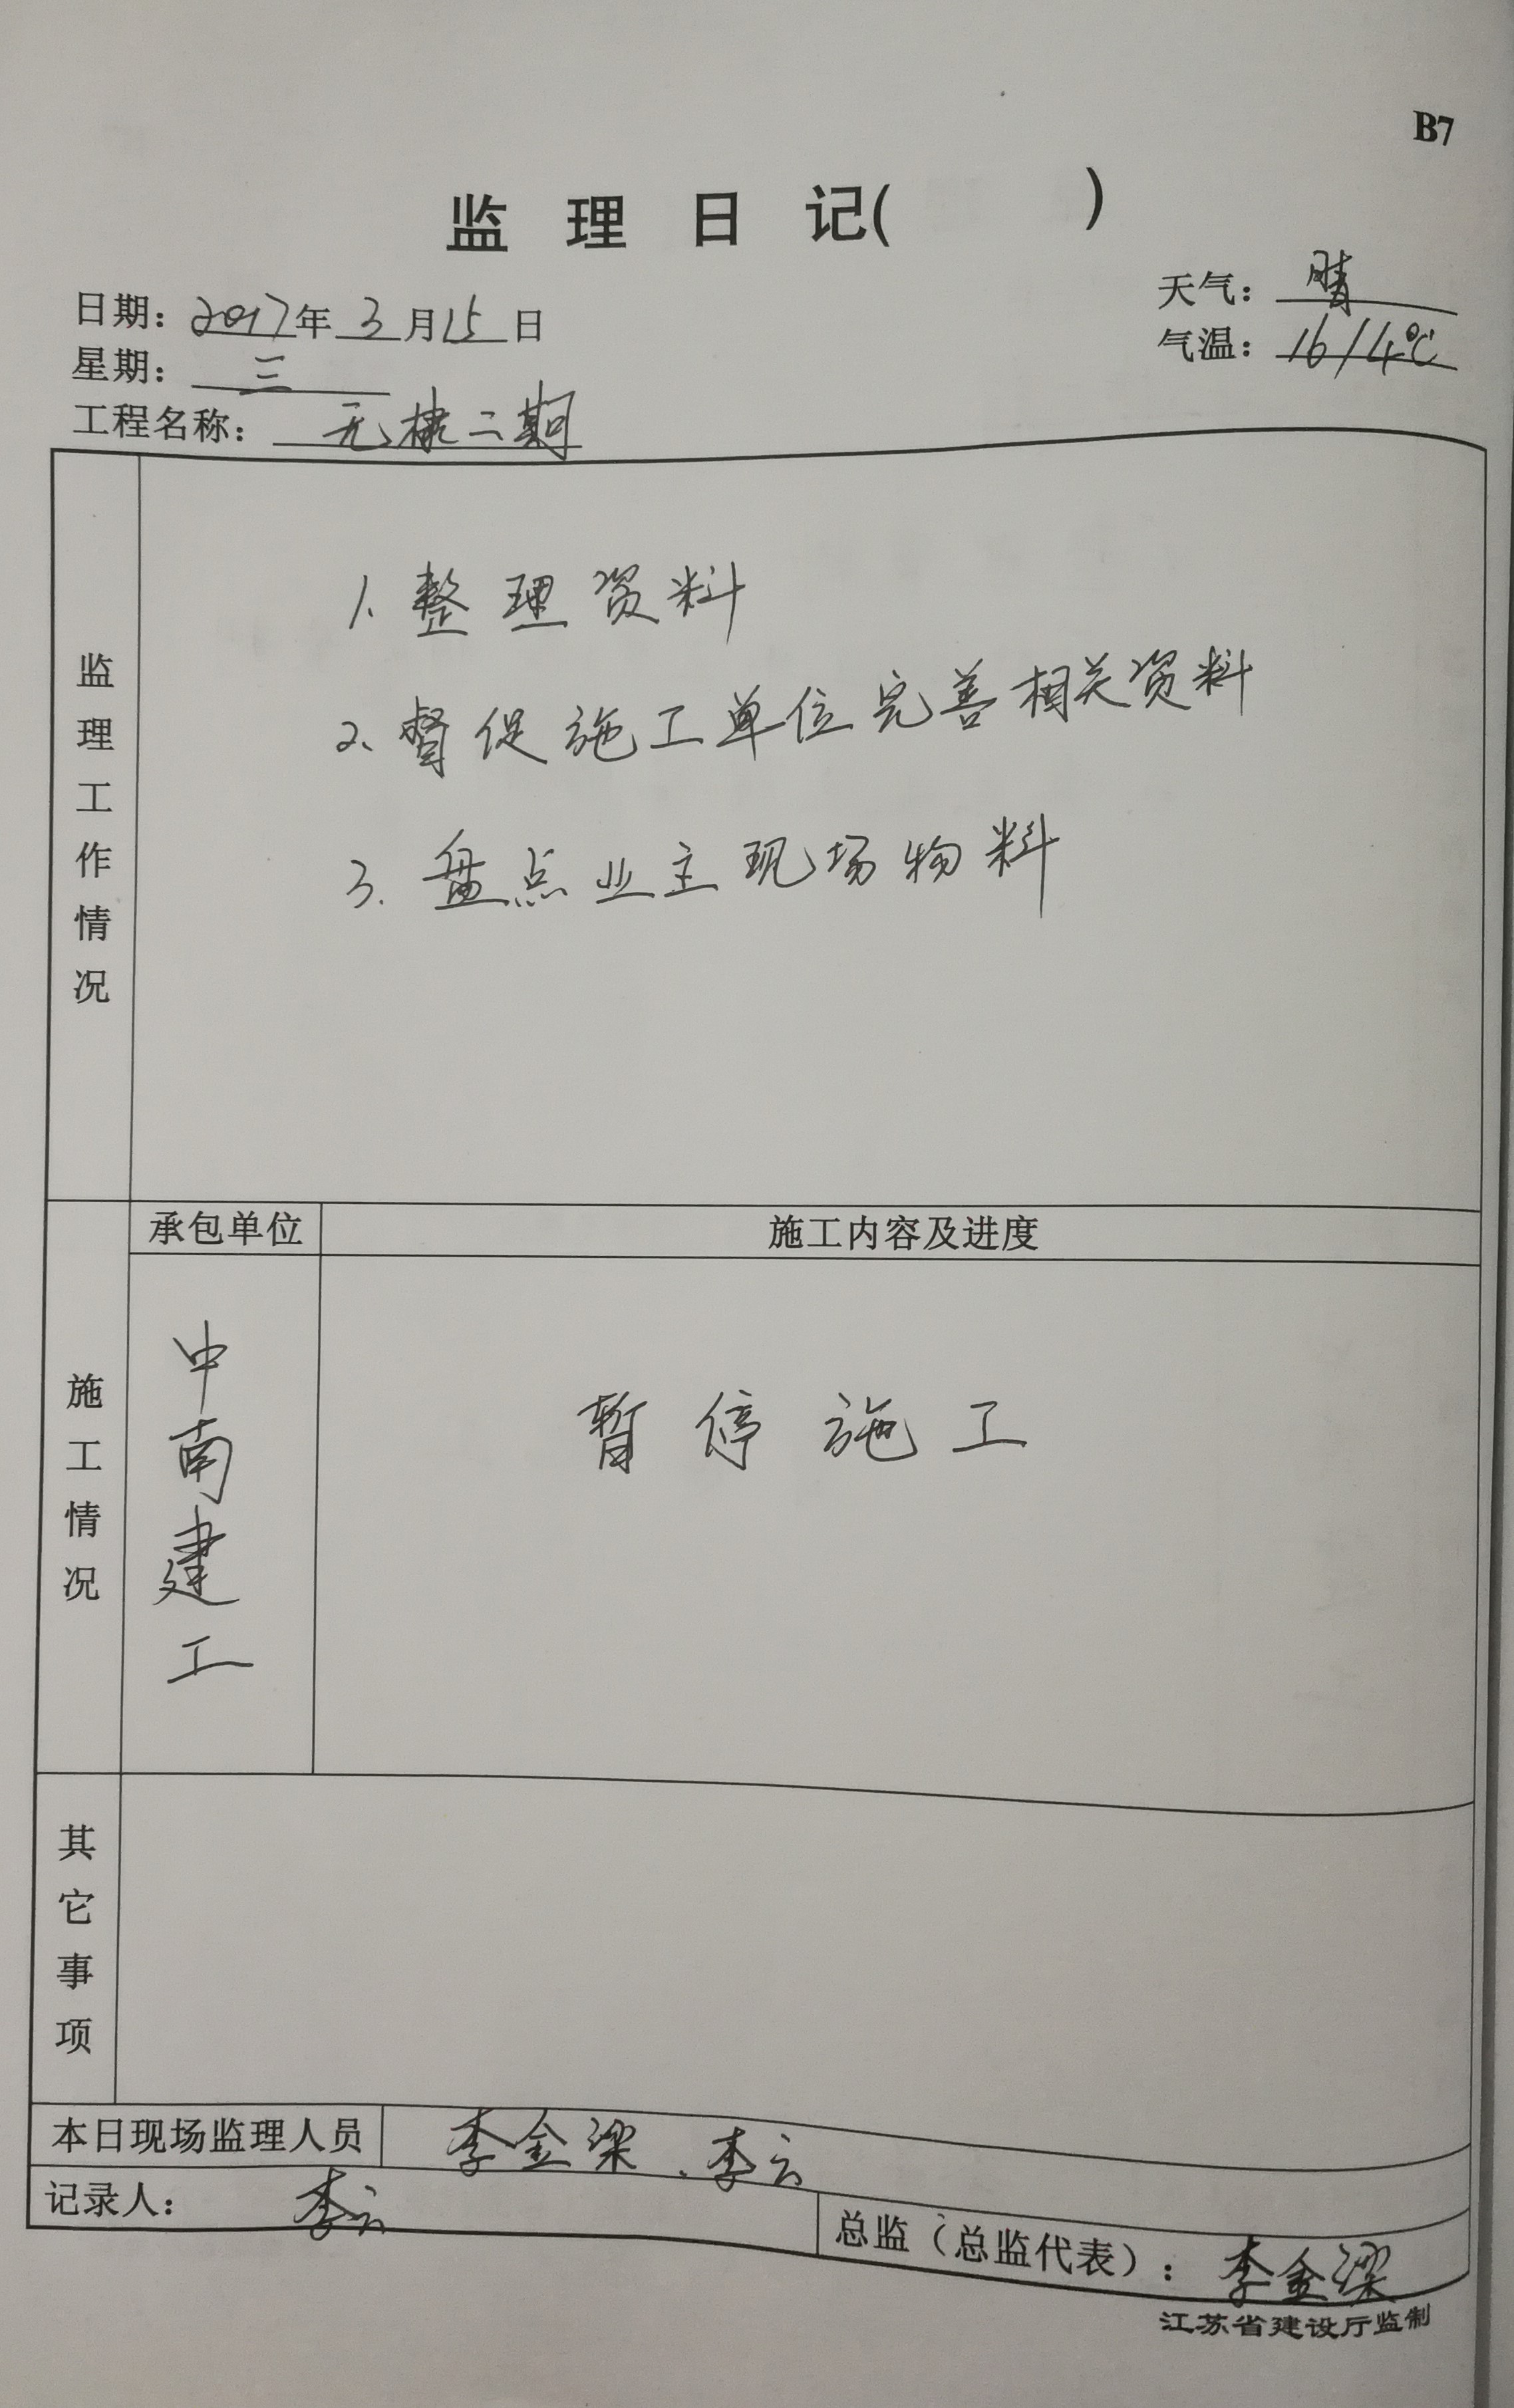 B7
监理日记( )
日期：2017年3月15日
天气：晴
星期：三
气温：16/4℃
工程名称：无棣二期
监理工作情况
1、整理资料
2、督促施工单位完善相关资料
3、盘点业主现场物料
承包单位
施工内容及进度
施工情况
中南建工
暂停施工
其它事项
本日现场监理人员 李金梁、李云
记录人：李云
总监（总监代表）：李金梁
江苏省建设厅监制